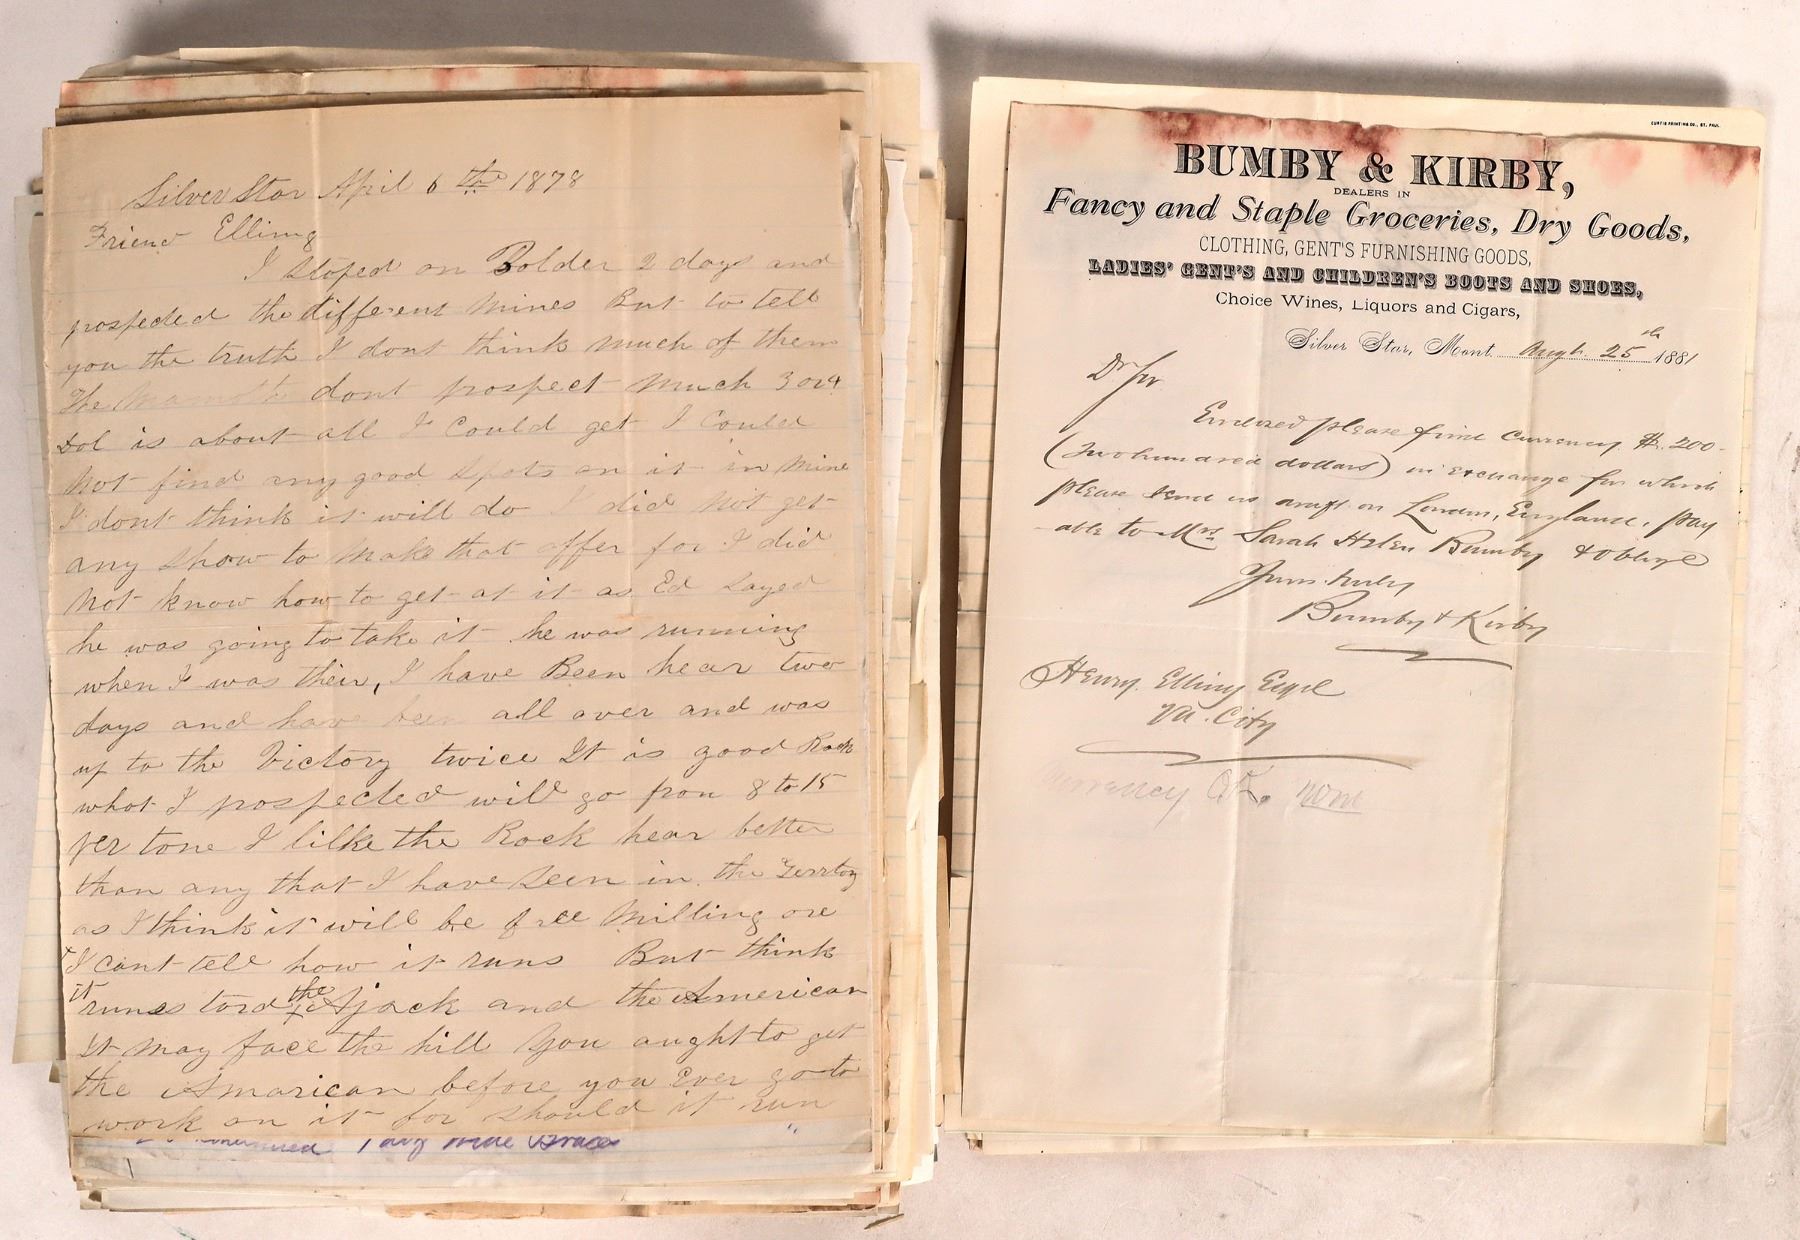 Silver Star April 6th 1878
Friend Elling
I stoped on Bolder 2 days and
prospected the different mines But to tell
you the truth I dont think much of them
The Mamoth dont prospect much 3 or 4
Dol is about all I could get I could
not find any good spots on it in mine
I dont think it will do I did not get
any show to make that offer for I did
not know how to get at it as Ed sayed
he was going to take it he was running
when I was their, I have Been hear two
days and have been all over and was
up to the Victory twice It is good Rock
what I prospected will go fron 8 to 15
per tone I lilke the Rock hear better
than any that I have seen in the Terrtoy
as I think it will be free milling ore
I cant tell how it runs But think
it runes tord the Ajack and the American
It may face the hill You aught to get
the Amarican before you Ever go to
work on it for should it run
CURTIS PRINTING CO., ST. PAUL
BUMBY & KIRBY,
DEALERS IN
Fancy and Staple Groceries, Dry Goods,
CLOTHING, GENT'S FURNISHING GOODS,
LADIES' GENT'S AND CHILDREN'S BOOTS AND SHOES,
Choice Wines, Liquors and Cigars,
Silver Star, Mont. Augt. 25th 1881
Dr Sir
Enclosed please find currency $.200-
(Two hundred dollars) in exchange for which
please send us draft on London, England, pay
-able to Mrs Sarah Helen Bumby & Oblige
Yours truly
Bumby & Kirby
Henry Elling Esqre
Va. City
Currency OK.